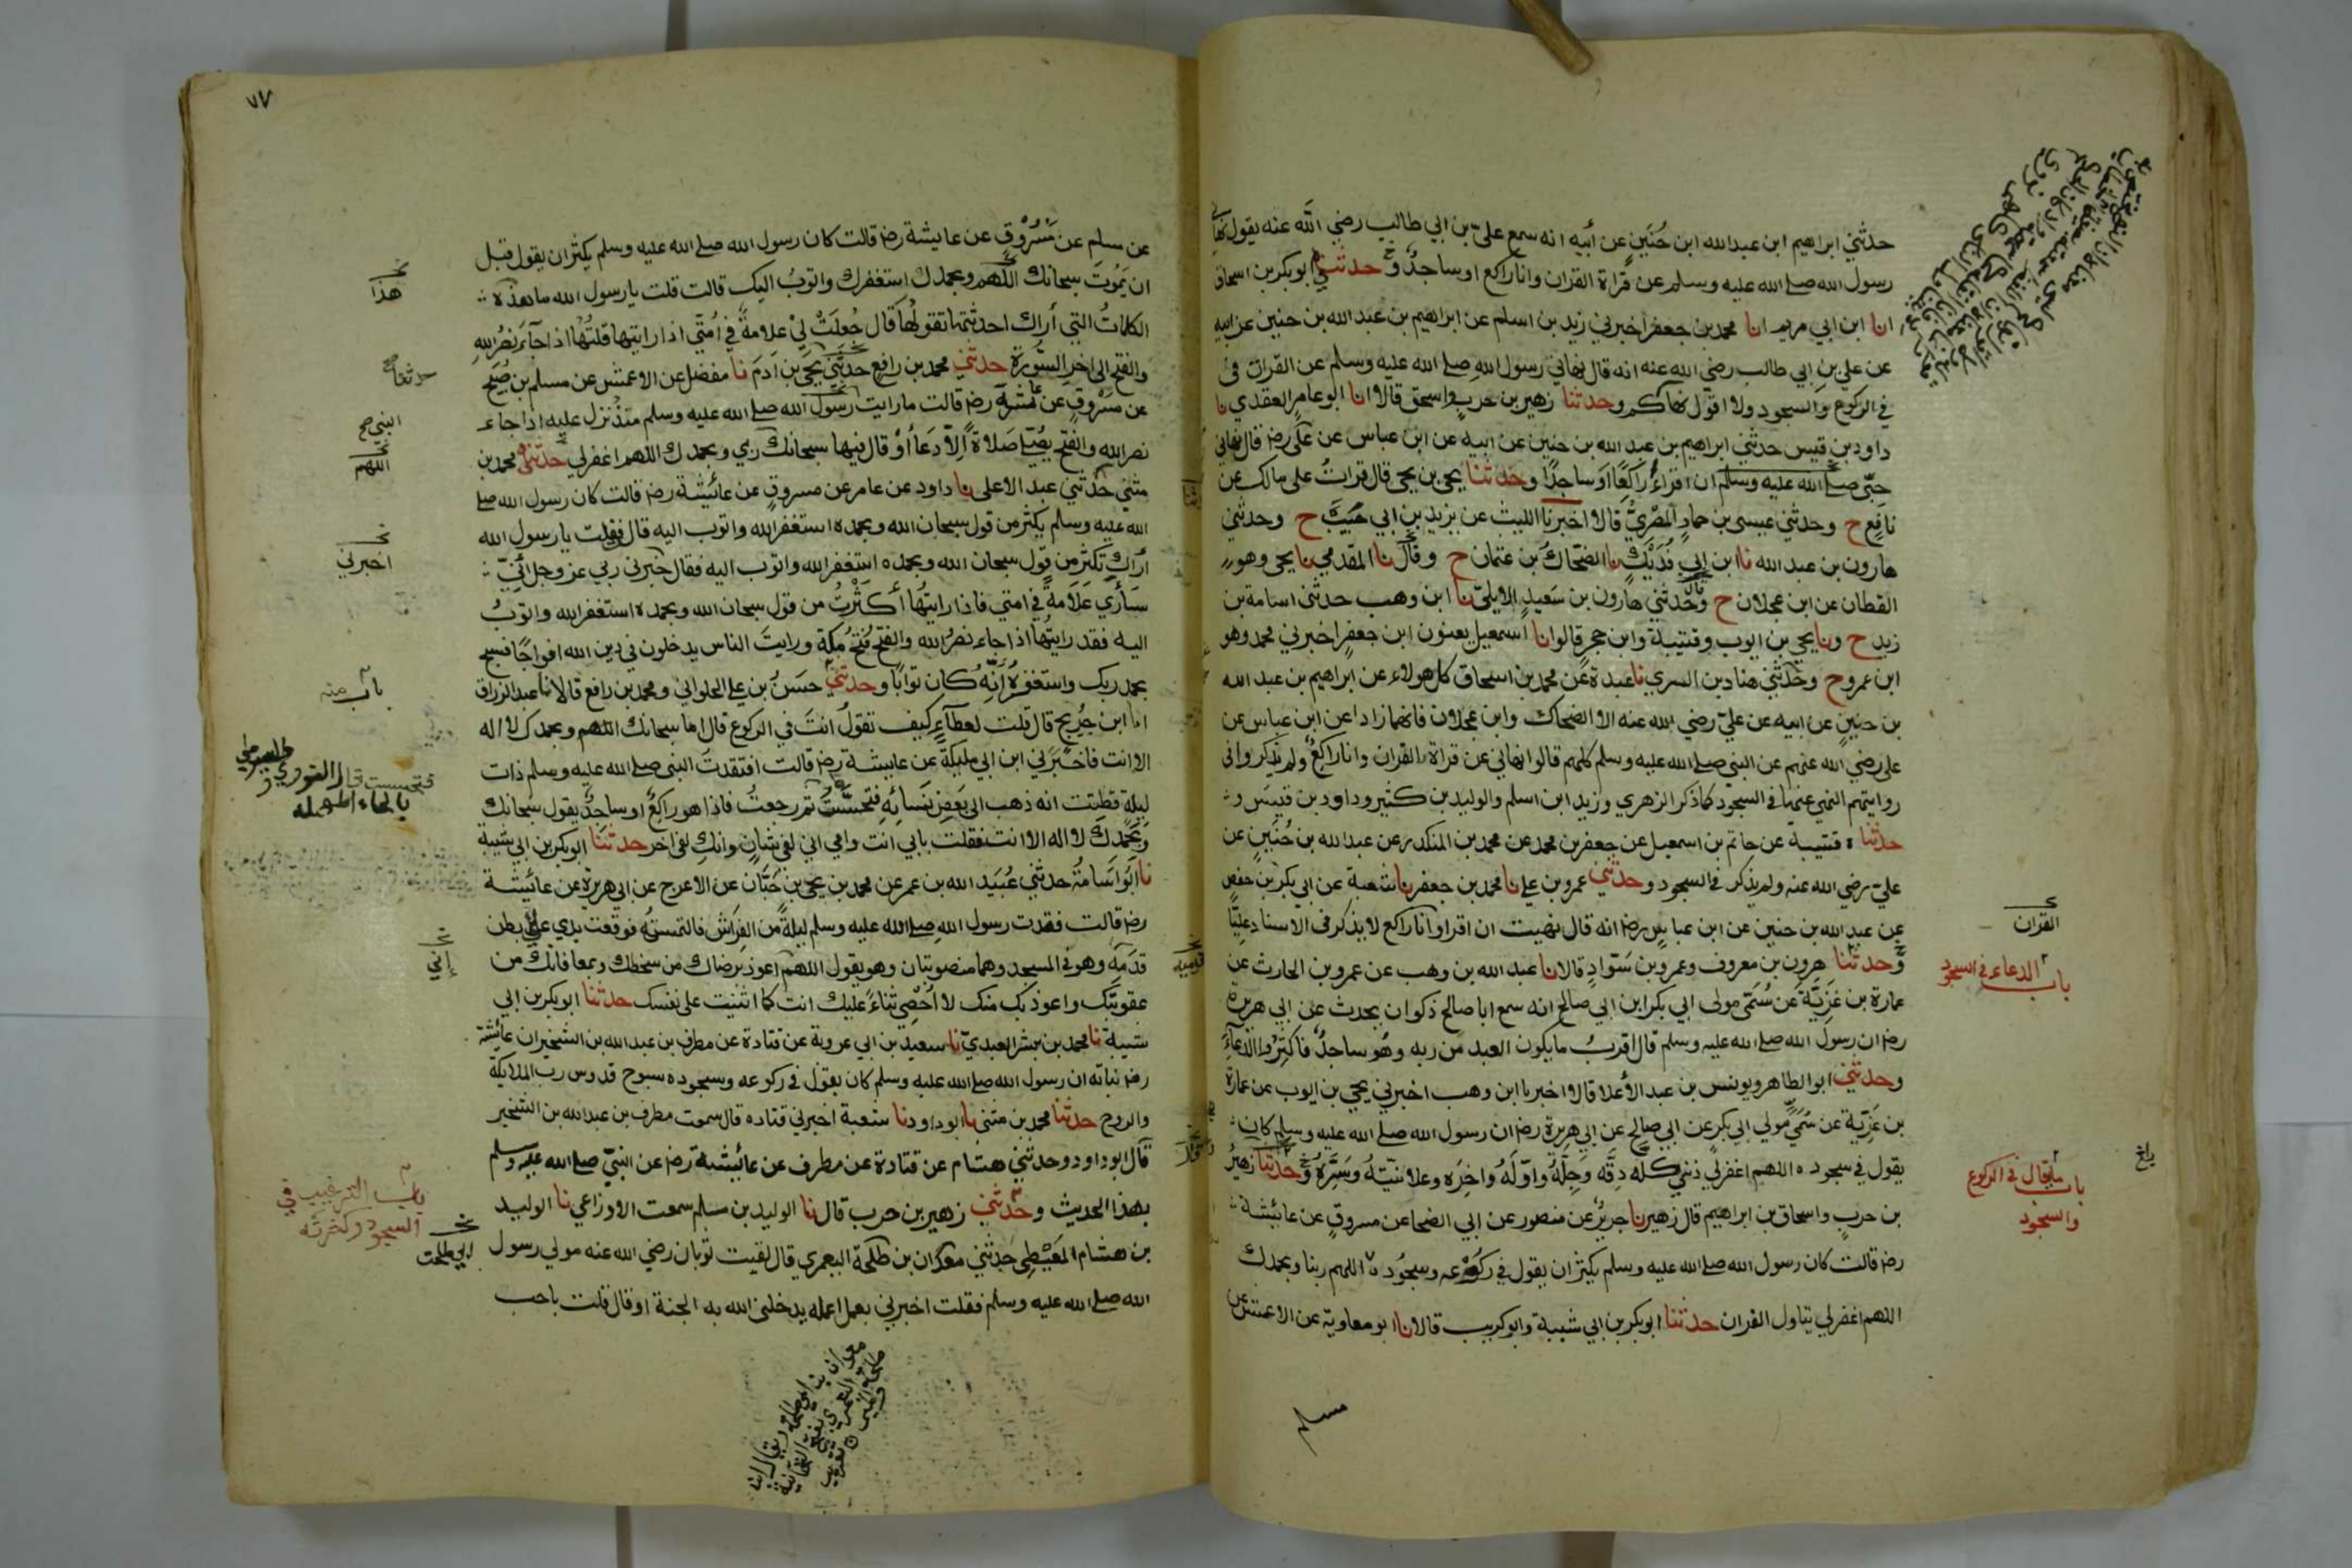 حدثني ابراهيم ابن عبدالله ابن حُنَين عن أبيه انه سمع عليّ بن ابي طالب رضي الله عنه يقول نهاني
رسول الله صلے الله عليه وسلم عن قراة القران وانا راكع او ساجدٌ وحدثني ابو بكر بن اسحاق
انا ابن ابي مريم انا محمد بن جعفر اخبرني زيد بن اسلم عن ابراهيم بن عبد الله بن حنين عن ابيه
عن علي بن ابي طالب رضي الله عنه انه قال نهاني رسول الله صلے الله عليه وسلم عن القراة في
في الركوع والسجود ولا اقول نهاكم وحدثنا زهير بن حرب واسحق قالا انا ابو عامر العقدي نا
داود بن قيس حدثني ابراهيم بن عبد الله بن حنين عن ابيه عن ابن عباس عن علي رضـ قال نهاني
حبّي صلے الله عليه وسلم ان اقراءَ راكعًا او ساجدًا وحدثنا يحيى بن يحيى قال قراتُ على مالك عن
نافع ح وحدثني عيسى بن حماد المصريُّ قالا اخبرنا الليث عن يزيد بن ابي حبيب ح وحدثني
هارون بن عبد الله نا ابن ابي فديك نا الضحاك بن عثمان ح وقال نا المقدمي نا يحيى وهو
القطان عن ابن عجلان ح وحدثني هارون بن سعيد الايليّ نا ابن وهب حدثني اسامة بن
زيد ح ونا يحيى بن ايوب وقتيبة وابن حجر قالوا انا اسمعيل يعنون ابن جعفر اخبرني محمد وهو
ابن عمرو ح وحدثني هناد بن السري نا عبدة عن محمد بن اسحاق كل هولاء عن ابراهيم بن عبد الله
بن حنين عن ابيه عن عليّ رضي الله عنه الا الضحاك وابن عجلان فانهما زادا عن ابن عباس عن
على رضي الله عنهم عن النبي صلے الله عليه وسلم كلهم قالوا نهاني عن قراة القران وانا راكعٌ ولم يذكروا في
روايتهم النهي عنها في السجود كما ذكر الزهري وزيد ابن اسلم والوليد بن كثير وداود بن قيس و
حدثنا ه قتيبة عن حاتم بن اسمعيل عن جعفر بن محمد عن محمد بن المنكدر عن عبدالله بن حُنَين عن
عليّ رضي الله عنه ولم يذكر في السجود وحدثني عمرو بن علي نا محمد بن جعفر نا شعبة عن ابي بكر بن حفص
عن عبد الله بن حنين عن ابن عباس رضـ انه قال نهيت ان اقرا وانا راكع لا يذكر في الاسناد عليًّا
وحدثنا هرون بن معروف وعمرو بن سوّاد قالا نا عبد الله بن وهب عن عمرو بن الحارث عن
عمارة بن غزيّة عن سُمَيّ مولى ابي بكر ابن ابي صالح انه سمع ابا صالح ذكوان يحدث عن ابي هريرة
رضـ ان رسول الله صلے الله عليه وسلم قال اقربُ ما يكون العبد من ربه وهُو ساجدٌ فاكثروا الدعاءَ
وحدثني ابو الطاهر ويونس بن عبد الأعلا قالا اخبرنا ابن وهب اخبرني يحيى بن ايوب عن عمارة
بن غزيّة عن سُمَيّ مولي ابي بكر عن ابي صالح عن ابي هريرة رضـ ان رسول الله صلے الله عليه وسلم كان
يقول في سجوده اللهم اغفرلي ذنبي كلّه دِقّه وجِلّهُ واوّلَهُ واخِرَه وعلانيّتهُ وسِرّهُ وحدثنا زهيرُ
بن حرب واسحاق بن ابراهيم قال زهير نا جريرٌ عن منصور عن ابي الضحا عن مسروقٍ عن عائشة
رضـ قالت كان رسول الله صلے الله عليه وسلم يكثر ان يقول في ركوعه وسجُوده اللهم ربنا وبحمدك
اللهم اغفرلي يتاول القران حدثنا ابو بكر بن ابي شيبة وابو كريب قالا نا ابو معاوية عن الاعمش عن
القران
باب الدعاء في السجود
باب مايقال في الركوع
والسجود
مسلم
٧٧
عن مسلم عن مَسْرُوْقٍ عن عايشة رضـ قالت كان رسول الله صلے الله عليه وسلم يكثر ان يقول قبل
ان يَمُوتَ سبحانك اللّهم وبحمدك استغفرك واتوبُ اليك قالت قلت يارسول الله ما هذه
الكلماتُ التي أراك احدثتها تقولُها قال جُعِلَتْ لِيْ علامةٌ في اُمتّي اذا رايتها قلتُها اذا جآءَ نصرُ الله
والفتح الى اخر السُّورة حدثني محمد بن رافع حدثني يحيى بن ادَمَ نا مفضل عن الاعمش عن مسلم بن صبيح
عن مَسْروقٍ عن عائشة رضـ قالت ما رايت رسول الله صلے الله عليه وسلم منذُ نزل عليه اذا جاء
نصر الله والفتح يُصَلّي صَلاةً اِلّا دَعَا أَوْ قال فيها سبحانك ربي وبحمدك اللهم اغفرلي حدثني محمد بن
مثنى حدثني عبد الاعلى نا داود عن عامر عن مسروق عن عائشة رضـ قالت كان رسول الله صلے
الله عليه وسلم يكثر من قول سبحان الله وبحمده استغفر الله واتوب اليه قال فقلت يا رسول الله
أراك تكثر من قول سبحان الله وبحمده استغفر الله واتوب اليه فقال خبرني ربي عز وجل أنّي
سَأرَى علامةً في امتي فاذا رايتُها أكثرتُ من قول سبحان الله وبحمده استغفر الله واتوبُ
اليه فقد رايتُها اذا جاء نصرُ الله والفتح فتح مكة ورايتَ الناس يدخلون في دين الله افواجًا فسبح
بحمد ربك واستغفرهُ اِنّهُ كان توابًا وحدثني حسَنُ بن علي الحلواني ومحمد بن رافع قالا نا عبد الرزاق
انا ابن جُريج قال قلت لعطاءٍ كيف تقولُ انتَ في الركوع قال اما سبحانك اللهم وبحمدك لا اله
الا انت فاخبَرَني ابن ابي مليكة عن عايشة رضـ قالت افتقدتُ النبي صلے الله عليه وسلم ذات
ليلةٍ فظننت انه ذهب الى بَعض نسَائه فتحسَّستُ ثم رجعتُ فاذا هو راكعٌ او ساجدٌ يقول سبحانك
وبحمدك لا اله الا انت فقلت بابي انت وامي اني لفي شان وانك لفي آخر حدثنا ابو بكر بن ابي شيبة
نا ابَو اُسَامةُ حدثني عُبَيد الله بن عمر عن محمد بن يحيى بن حَبّان عن الاعرج عن ابي هريرة عن عائشة
رضـ قالت فقدت رسول الله صلے الله عليه وسلم ليلةً من الفراش فالتمستُه فوقعت يدي على بطن
قدمَه وهو في المسجد وهما منصوبتان وهو يقول اللهم اعوذ برضاك من سخطك وبمعافاتك من
عقوبتك واعوذ بك منك لا اُحْصِي ثناءً عليك انت كما اثنيت على نفسك حدثنا ابو بكر بن ابي
شيبة نا محمد بن بشر العبديّ نا سعيد بن ابي عروبة عن قتادة عن مطرف بن عبد الله بن الشخير ان عائشة
رضـ نباته ان رسول الله صلے الله عليه وسلم كان يقول في ركوعه وسجوده سبوح قدوس رب الملايكة
والروح حدثنا محمد بن مثنى نا ابو داود نا شعبة اخبرني قتاده قال سمعت مطرف بن عبد الله بن الشخير
قال ابو داود وحدثني هشام عن قتادة عن مطرف عن عائشة رضـ عن النبيّ صلے الله عليه وسلم
بهذا الحديث وحدثني زهير بن حرب قال نا الوليد بن مسلم سمعت الاوزاعي نا الوليد
بن هشام المعَيْطِي حدثني معدان بن طلحة اليعمري قال لقيت ثوبان رضي الله عنه مولي رسول
الله صلے الله عليه وسلم فقلت اخبرني بعمل اعمله يدخلني الله به الجنة او قال قلت باحب
هذا
حدثنا
النبي صح
اللهم
اخبرني
باب منه
بالحاء المهملة
إني
باب الترغيب في
السجود وكثرته
ابي طلحة